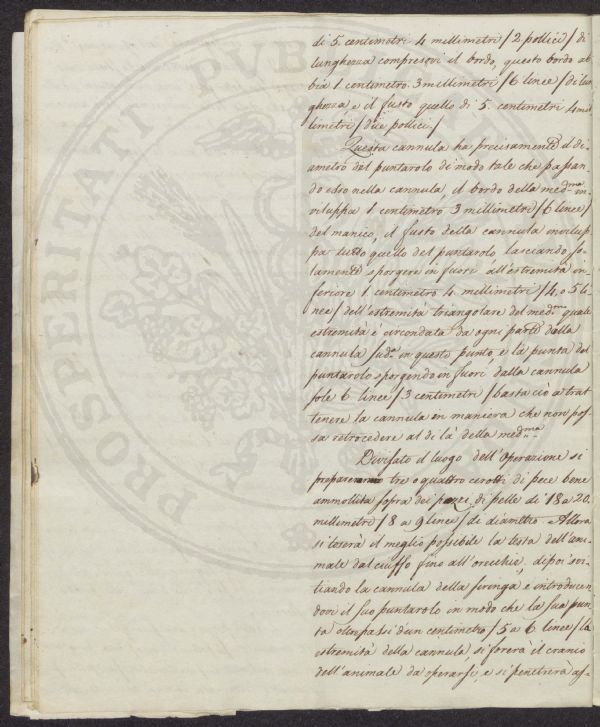 di 5. centimetri 4 millimetri / 2 pollici / di
lunghezza compresovi il bordo, questo bordo ab
bia 1 centimetro. 3 millimetri / 6 linee / di lun
ghezza e il fusto quello di 5. centimetri 4 mil
limetri / due pollici. /
Questa cannula ha precisamente il di-
ametro del puntarolo di modo tale che passan-
do esso nella cannula, il bordo della med.ma in-
viluppa 1. centimetro 3 millimetri / 6 linee /
del manico, il fusto della cannula invilup
pa tutto quello del puntarolo lasciando so-
lamente sporgere in fuori all'estremità in-
feriore 1. centimetro 4. millimetri / 4. o 5 li-
nee / dell'estremità triangolare del med.mo quale
estremità è circondata da ogni parte dalla
cannula sud.a in questo punto, e la punta del
puntarolo sporgendo in fuori dalla cannula
sole 6 linee / 3 centimetri / basta ciò a trat
tenere la cannula in maniera che non pos-
sa retrocedere al di là della med.ma
Divisato il luogo dell'operazione si
prepareranno tre o quattro cerotti di pece bene
ammollita sopra dei pezzi di pelle di 18 a 20.
millimetri / 8 a 9 linee / di diametro. Allora
si toserà il meglio possibile la testa dell'ani-
male dal ciuffo fino all'orecchie, dipoi sor-
tiando la cannula della siringa e introducen
dovi il suo puntarolo in modo che la sua pun
ta oltrepassi d'un centimetro / 5 a 6 linee / la
estremità della cannula si forerà il cranio
dell'animale da operarsi, e si penetrerà as-
PVB
ROSPERITATI